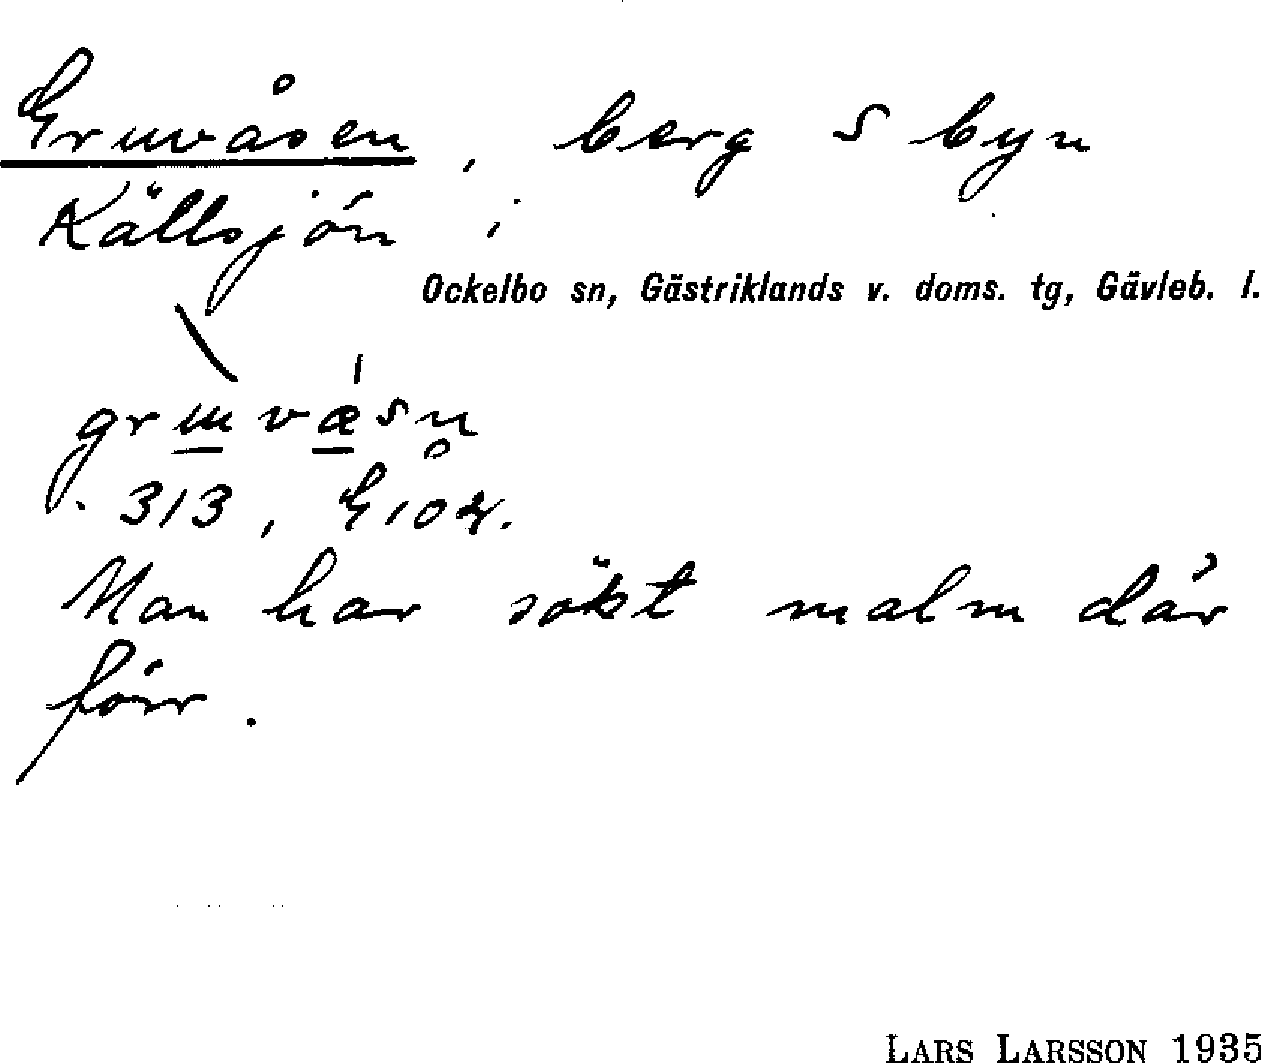 Gruvåsen, berg S byn
Källsjön i
Ockelbo sn, Gästriklands v. doms. tg, Gävleb. l.
313, G10
Man har sökt malm där
förr.
LARS LARSSON 1935